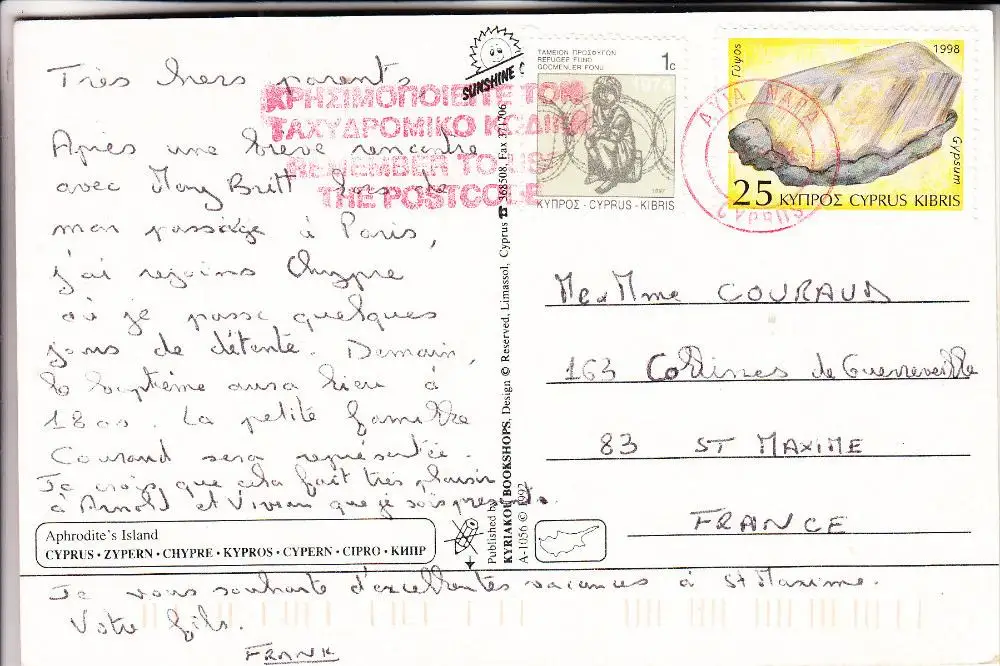 Très chers parents,
Après une brève rencontre
avec Mary Britt lors de
mon passage à Paris,
j'ai rejoins Chypre
où je passe quelques
jours de détente. Demain,
le baptême aura lieu à
18 00. La petite famille
Couraud sera représentée.
Je crois que cela fait très plaisir
à Arnold et Vivian que je sois présent.
Aphrodite's Island
CYPRUS · ZYPERN · CHYPRE · KYPROS · CYPERN · CIPRO · КИПР
Je vous souhaite d'excellentes vacances à St Maxime.
Votre fils.
FRANK
ΧΡΗΣΙΜΟΠΟΙΕΙΤΕ ΤΟΝ
ΤΑΧΥΔΡΟΜΙΚΟ ΚΩΔΙΚΑ
REMEMBER TO USE
THE POSTCODE
SUNSHINE
Published by
KYRIAKOU BOOKSHOPS, Design © Reserved, Limassol, Cyprus ☎ 368508, Fax 371706
A-1056 © 1997
ΤΑΜΕΙΟΝ ΠΡΟΣΦΥΓΩΝ
REFUGEE FUND
GÖÇMENLER FONU
1c
1974
1997
ΚΥΠΡΟΣ - CYPRUS - KIBRIS
1998
Γύψος
Gypsum
25 ΚΥΠΡΟΣ CYPRUS KIBRIS
ΑΓΙΑ ΝΑΠΑ
CYPRUS
Me Mme COURAUD
163 Collines de Guerrevieille
83 ST MAXIME
FRANCE